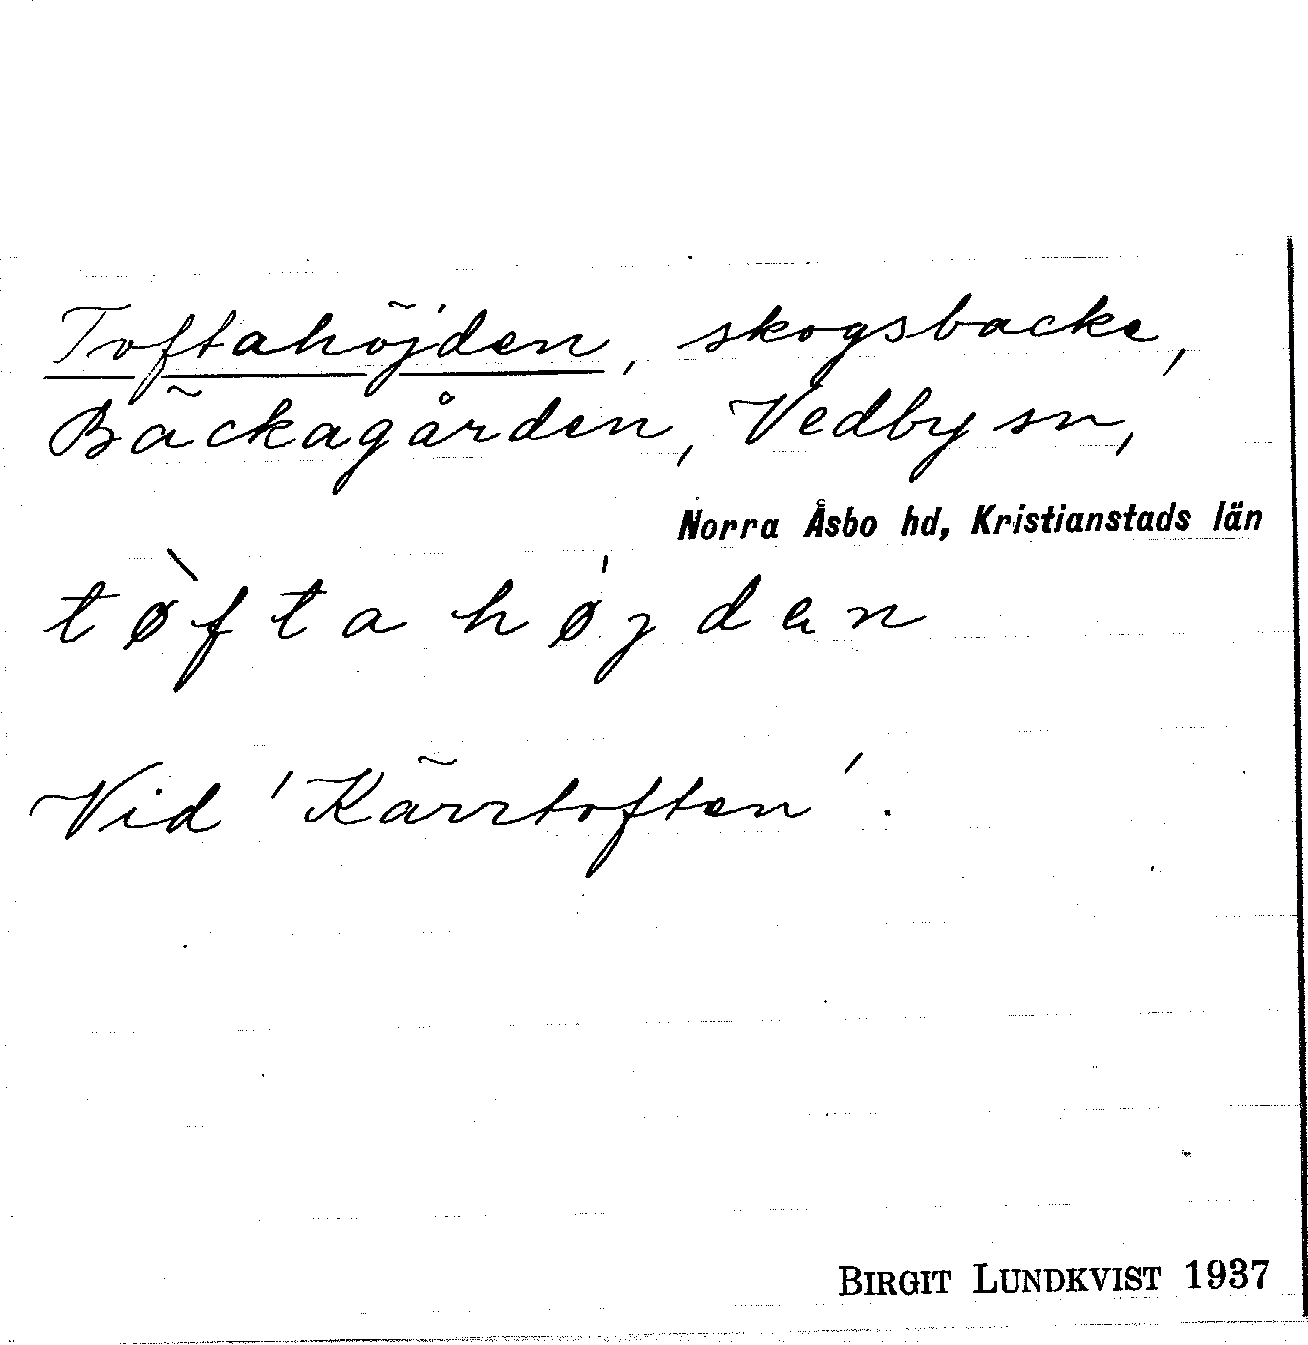 Toftahöjden, skogsbacke,
Bäckagården, Vedby sn,
Norra Åsbo hd, Kristianstads län
tø̀ftahǿjdan
Vid 'Kärrtoften'.
BIRGIT LUNDKVIST 1937